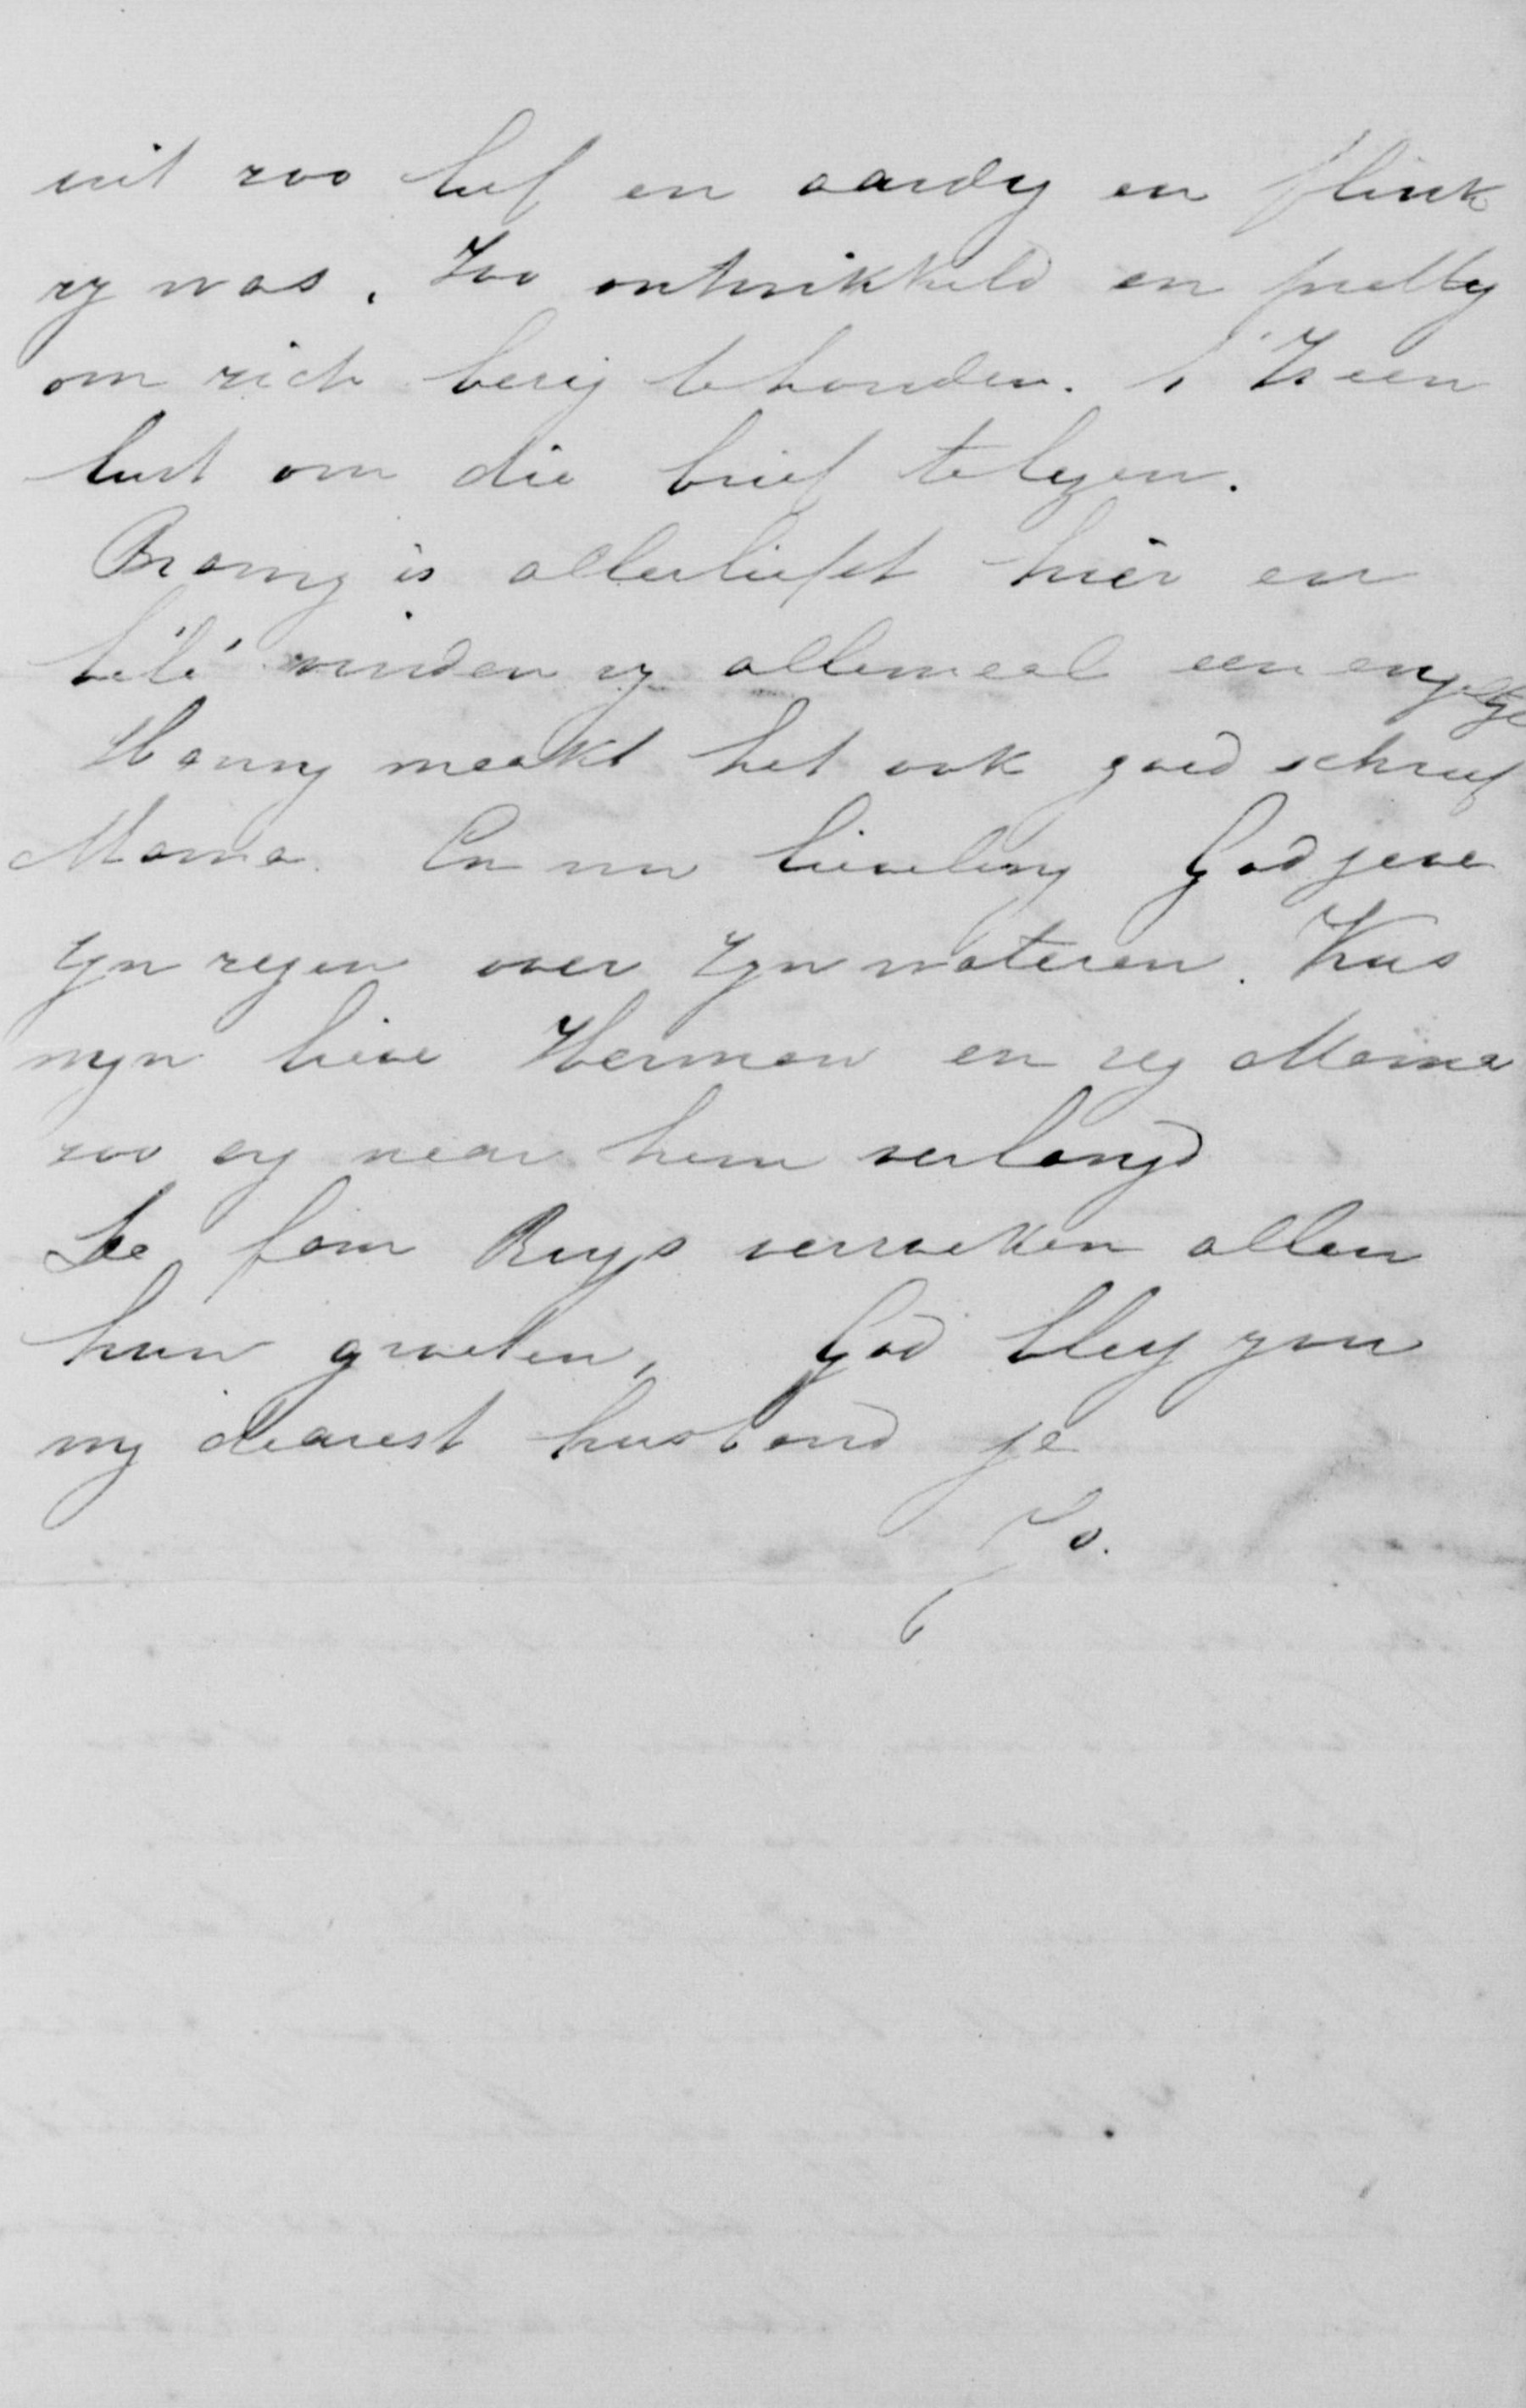 uit zoo lief en aardig en flink
zy was. Zoo ontwikkeld en prettig
om zich bezig te houden. 't Is een
lust om die brief te lezen.
Bramy is allerliefst hier en
vinden zy allemaal een engeltje
Hanny maakt het ook goed schreef
Mama. En nu lieveling God geve
zyn zegen over zyn wateren. Kus
myn lieve Herman en zeg Mama
zoo erg naar hem verlangd
De fam Ruys verzoeken allen
hun groeten, God bless you
my dearest husband je
Jo.